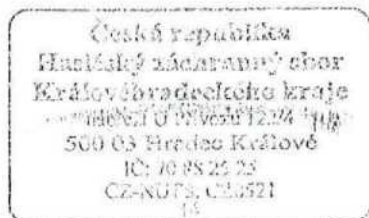 Česká republika
Hasičský záchranný sbor
Královéhradeckého kraje
500 03 Hradec Králové
IČ: 70 88 25 25
CZ-NUTS, CZ0521